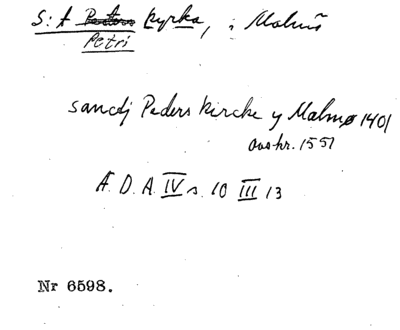 S:t Peters kyrka, i Malmö
Petri
sanctj Peders kircke y Malmø 1401
avskr. 1551
A. D. A. IV s. 10 III 13
Nr 6598.